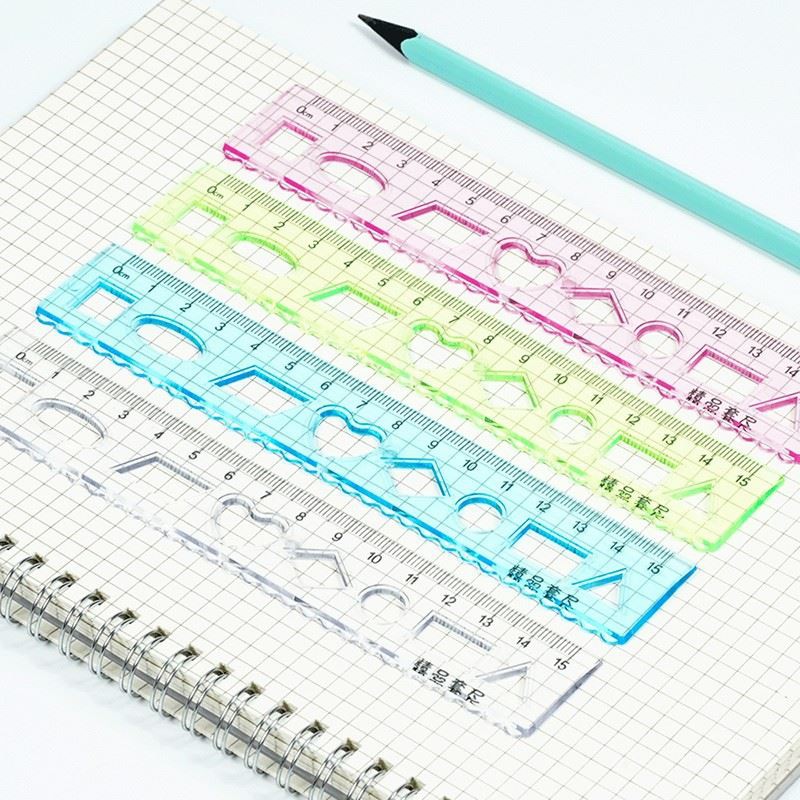 0cm 1 2 3 4 5 6 7 8 9 10 11 12 13 14
精品套尺
0cm 1 2 3 4 5 6 7 8 9 10 11 12 13 14 15
精品套尺
0cm 1 2 3 4 5 6 7 8 9 10 11 12 13 14 15
精品套尺
0cm 1 2 3 4 5 6 7 8 9 10 11 12 13 14 15
精品套尺